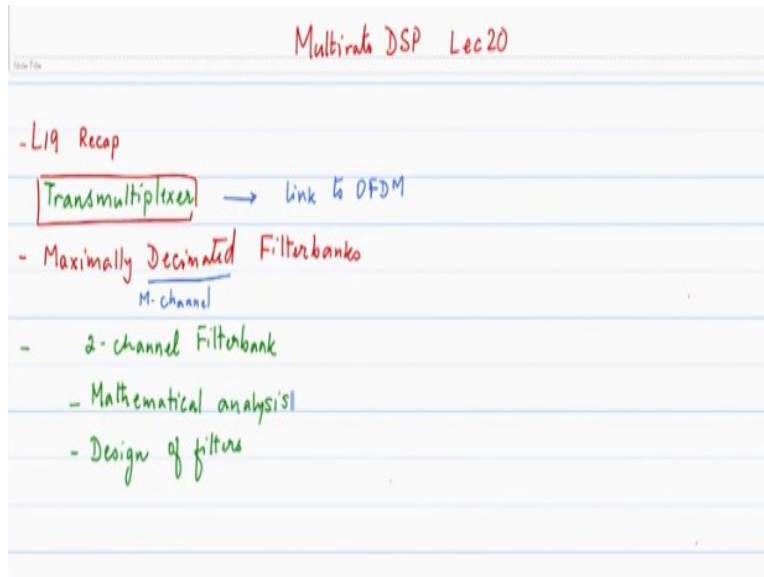 Multirate DSP Lec 20
Note Title
- L19 Recap
Transmultiplexer → link to OFDM
- Maximally Decimated Filterbanks
M-channel
- 2-channel Filterbank
- Mathematical analysis
- Design of filters